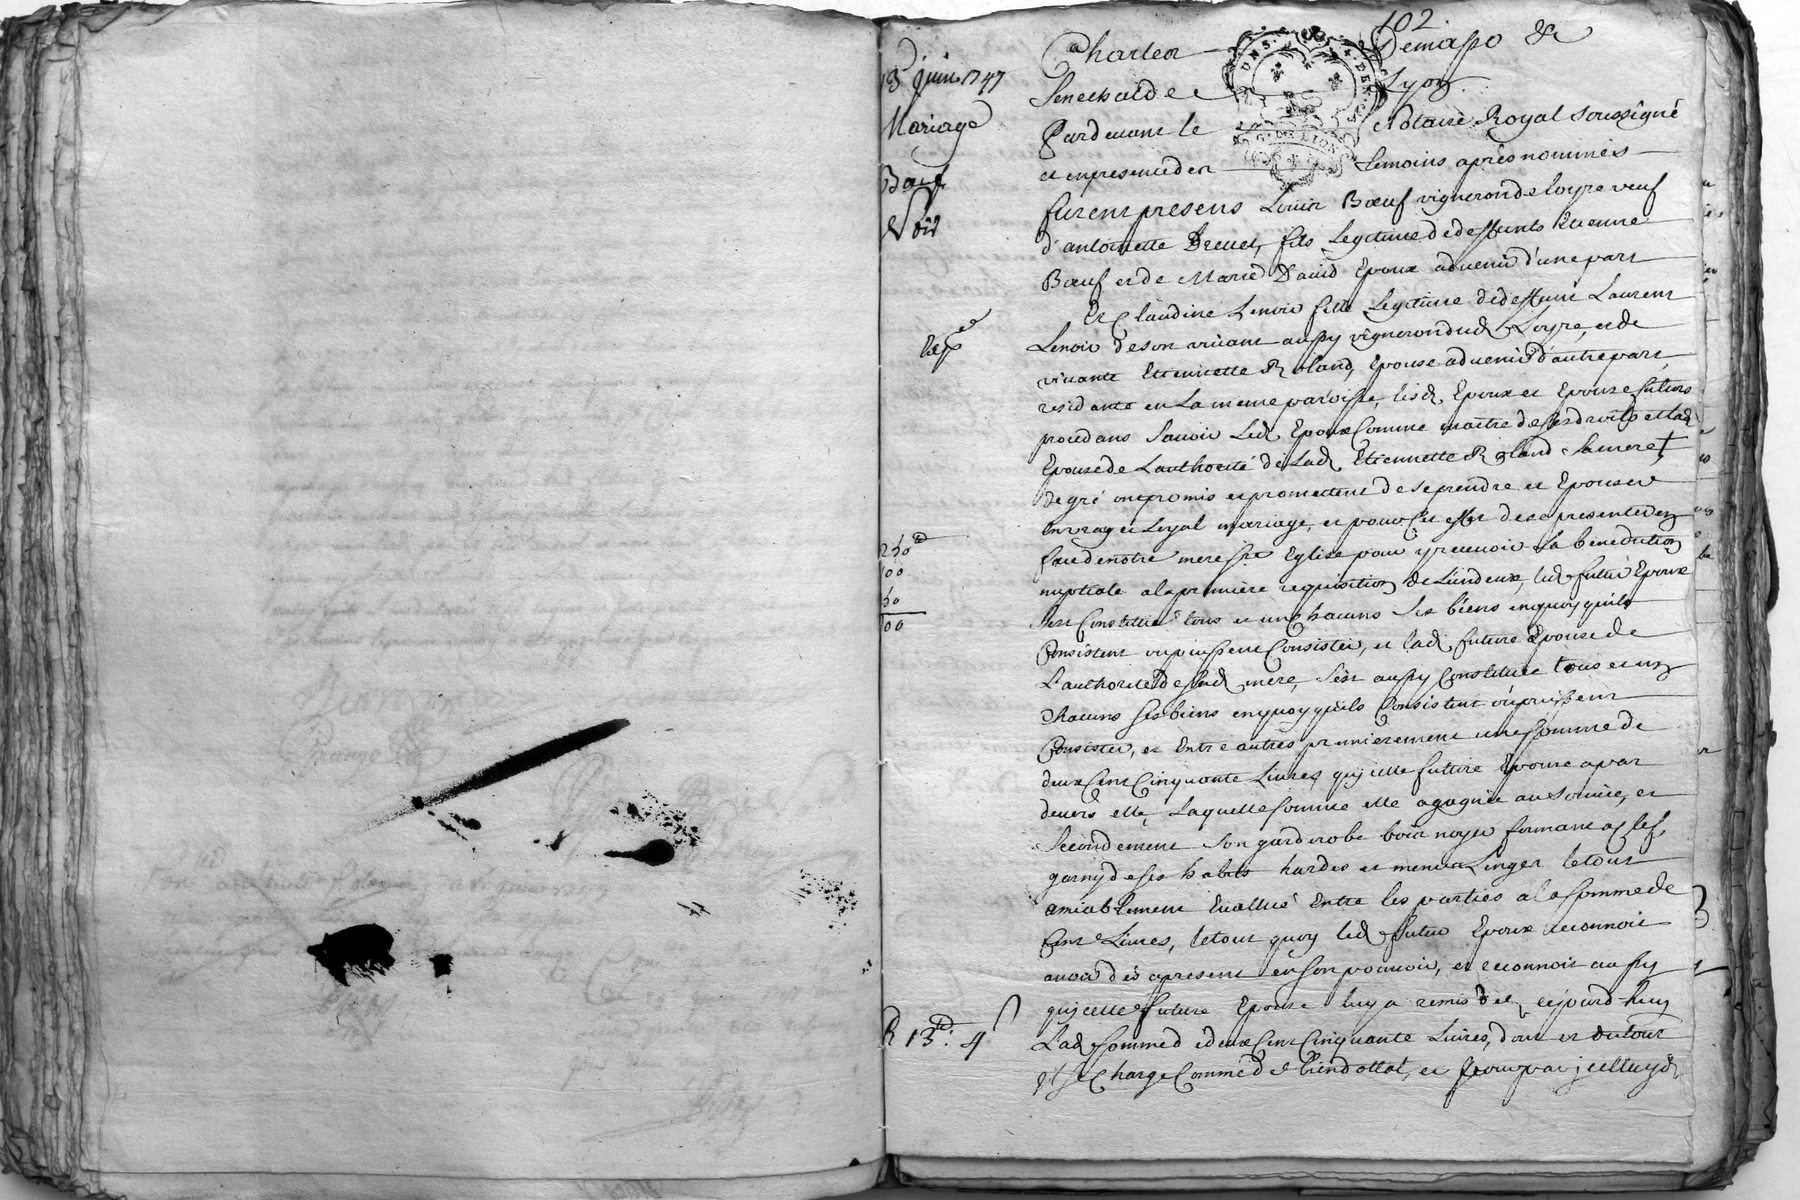 102.
13 juin 1747
Mariage
Bœuf
& Noir
Exp.ée
250 lt
100
50
R 13 lt. 4 s
Charles Demasso &
Senechal de Lyon.
Pardevant le Notaire Royal soussigné
et en presence des temoins après nommés
furent presens Louis Bœuf vigneron de loyre veuf
d'antoinette Brevet, fils Legitime de deffunts Etienne
Bœuf et de Marie David Epoux advenir d'une part
Et Claudine Lenoir fille Legitime de deffunt Laurent
Lenoir de son vivant aussy vigneron dud. Loyre, et de
vivante Etiennette Roland, Epouse advenir d'autre part,
residante en la meme paroisse, lesd. Epoux et Epouse futurs
procedans Savoir Led. Epoux Comme maitre de ses droits et lad.
Epouse de L'authorité de Lad. Etiennette Roland sa mere †
de gré ont promis et promettent de se prendre et Epouser
en vray et Loyal mariage, et pour Cet effet de se presenter en
face de notre mere Ste. Eglise pour y recevoir la benediction
nuptiale a la premiere requisition de L'un deux, led. futur Epoux
s'est Constitué tous et un Chacuns ses biens en quoy qu'ils
Consistent ou puissent Consister, et lad. future Epouse de
L'authorité de sad. mere, s'est aussy Constituée tous et un
Chacuns ses biens en quoy qu'ils Consistent ou puissent
Consister, et Entre autres premierement une Somme de
deux Cent Cinquante Livres, qu'icelle future Epouse a par
devers elle, Laquelle somme elle a gagnée au service, et
Secondement son garderobe bois noyer fermant a clef,
garny de ses habits hardes et menus Linges le tout
amiablement Evallué Entre les parties a la somme de
Cent Livres, le tout quoy led. futur Epoux reconnoit
avoir dès a present en son pouvoir, et reconnoit aussy
qu'icelle future Epouse luy a remis cejourd-huy
Lad. somme de deux Cent Cinquante Livres, dont et du tout
il se Charge Comme de bien dottal, et pour par icelluy d.